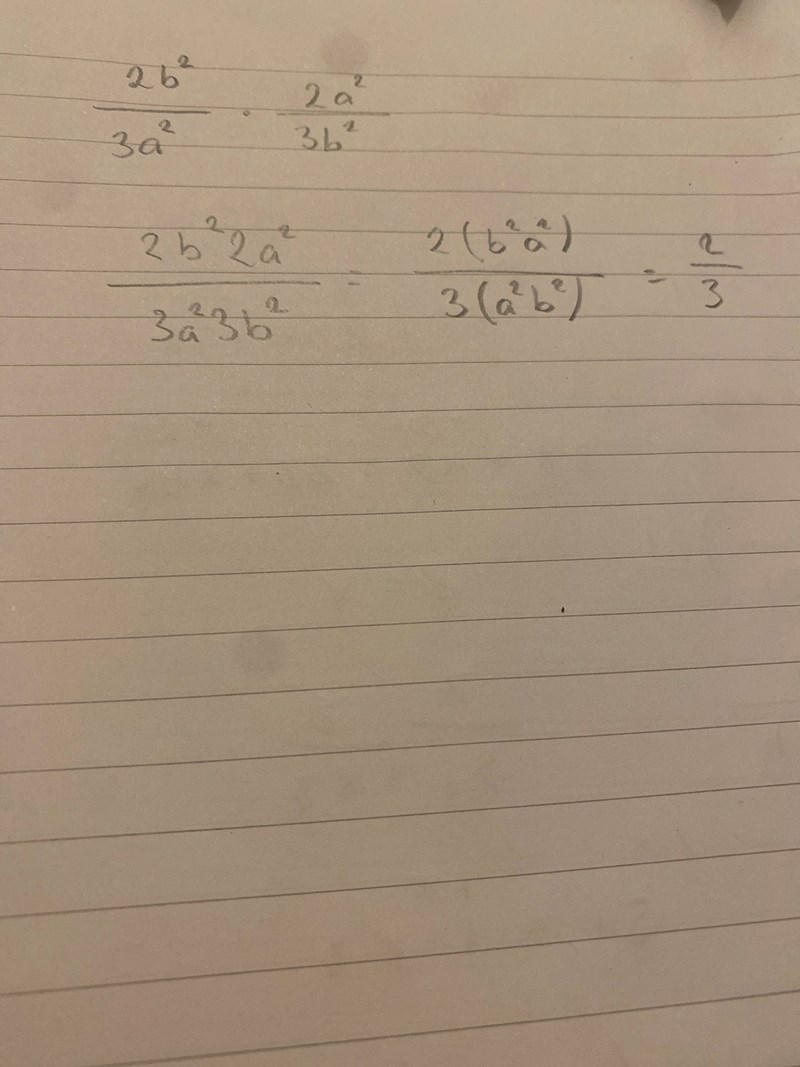 2b²/3a² · 2a²/3b²
2b²2a²/3a²3b² = 2(b²a²)/3(a²b²) = 2/3